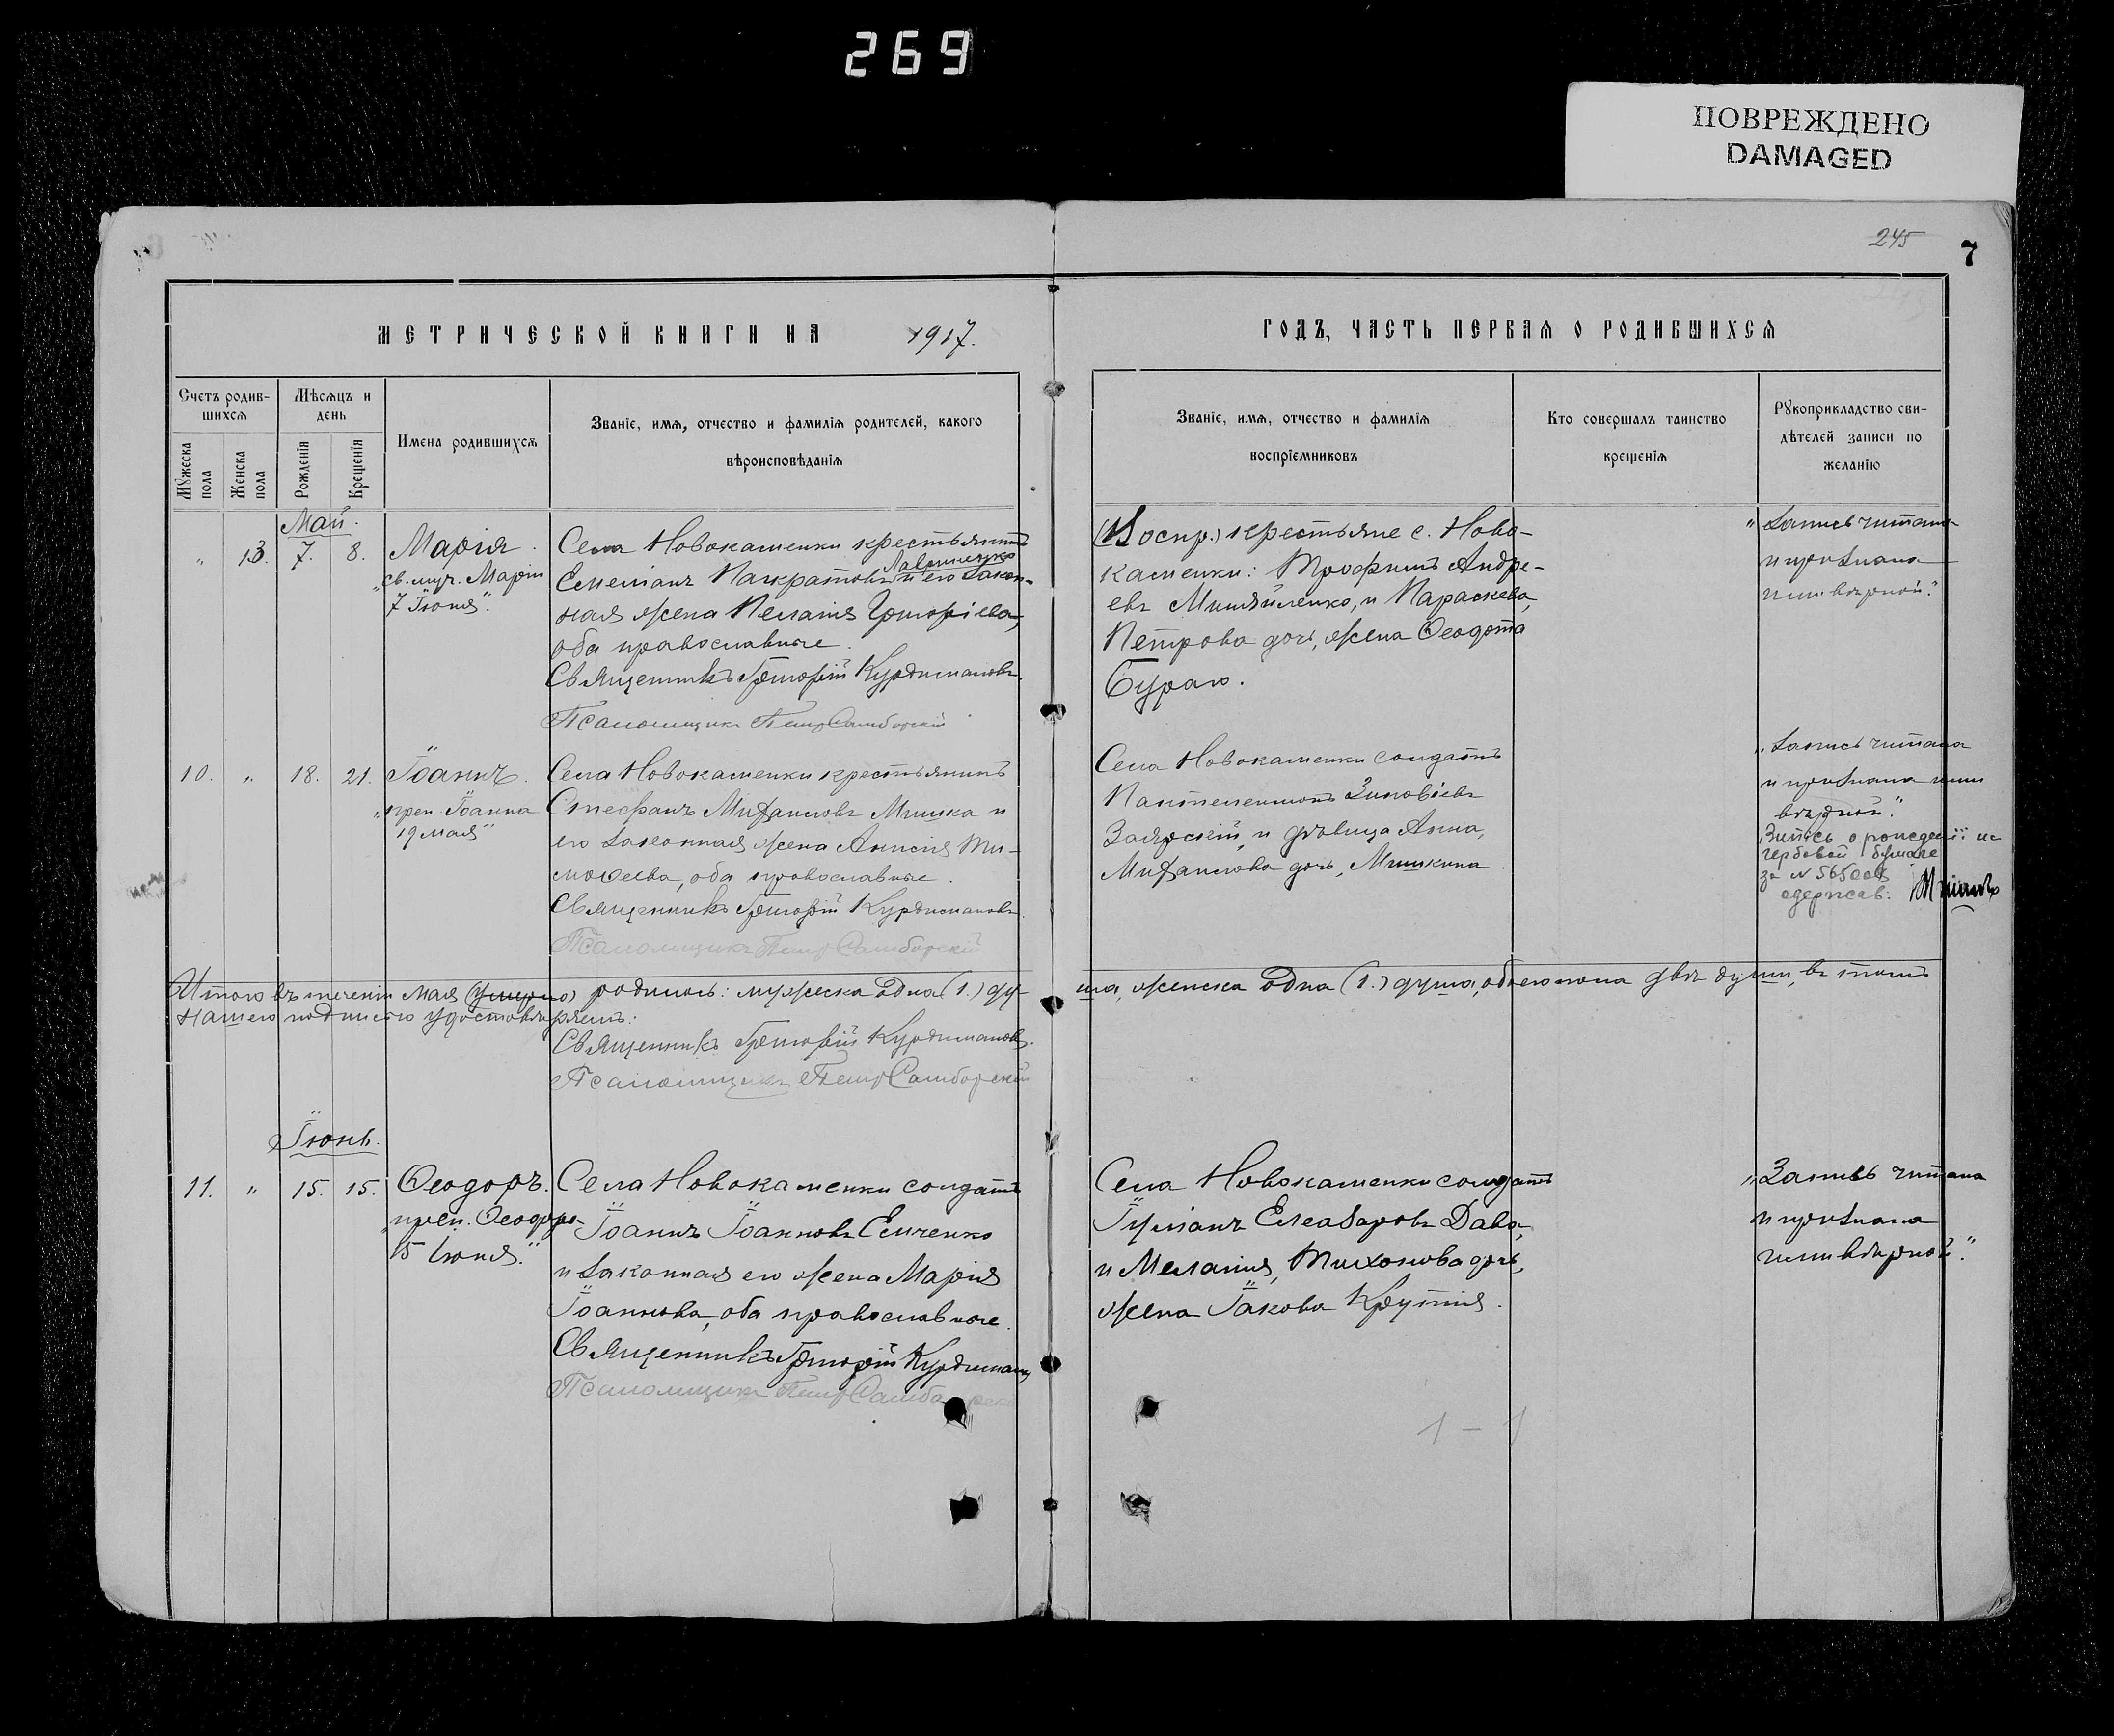 269
ПОВРЕЖДЕНО
DAMAGED
245
7
МЕТРИЧЕСКОЙ КНИГИ НА 1917.
ГОДЪ, ЧАСТЬ ПЕРВАЯ О РОДИВШИХСЯ
Счетъ родив-
шихся
Мужеска пола
Женска пола
Мѣсяцъ и
день
Рожденія
Крещенія
Имена родившихся
Званіе, имя, отчество и фамилія родителей, какого
вѣроисповѣданія
Званіе, имя, отчество и фамилія
воспріемниковъ
Кто совершалъ таинство
крещенія
Рукоприкладство сви-
дѣтелей записи по
желанію
Май.
„ 13. 7. 8.
Марія.
„св. муч. Маріи
7 Іюня".
Села Новокаменки крестьянинъ
Лавриненко
Емеліанъ Панкратовъ и его закон-
ная жена Пелагія Григоріева,
оба православные.
Священникъ Григорій Курдимановъ.
Псаломщикъ Петръ Самборскій
(Воспр.) крестьяне с. Ново-
каменки: Трофимъ Андре-
евъ, и Параскева,
Петрова дочь, жена Ѳеодота
Бураго.
„Запись читана
и признана
ими вѣрной."
10. „ 18. 21.
Іоаннъ.
„преп. Іоанна
19 мая"
Села Новокаменки крестьянинъ
Стефанъ Михаиловъ Мишка и
его законная жена Анисія Ти-
моѳеева, оба православные.
Священникъ Григорій Курдимановъ.
Псаломщикъ Петръ Самборскій
Села Новокаменки солдатъ
Пантелеимонъ Зиновіевъ
Заярскій, и дѣвица Анна,
Михаилова дочь, Мишкина.
„Запись читана
и признана ими
вѣрной."
гербовой бумаге
за №
одержав.
Итого въ теченіи мая (умерло) родилось: мужеска одна (1.) ду-
ша, женска одна (1.) душа, обоего пола двѣ души, въ томъ
нашею подписью удостовѣряемъ:
Священникъ Григорій Курдимановъ.
Псаломщикъ Петръ Самборскій
Іюнь.
11. „ 15. 15.
Ѳеодоръ.
„преп. Ѳеодора
15 Іюня."
Села Новокаменки солдатъ
Іоаннъ Іоанновъ Емченко
и законная его жена Марія
Іоаннова, оба православные.
Священникъ Григорій Курдимановъ
Псаломщикъ Петръ Самборскій
Села Новокаменки солдатъ
Іуліанъ Елеазаровъ Дава,
и Меланія, Тихонова дочь,
жена Іакова Крутія.
„Запись читана
и признана
ими вѣрной."
1 – 1